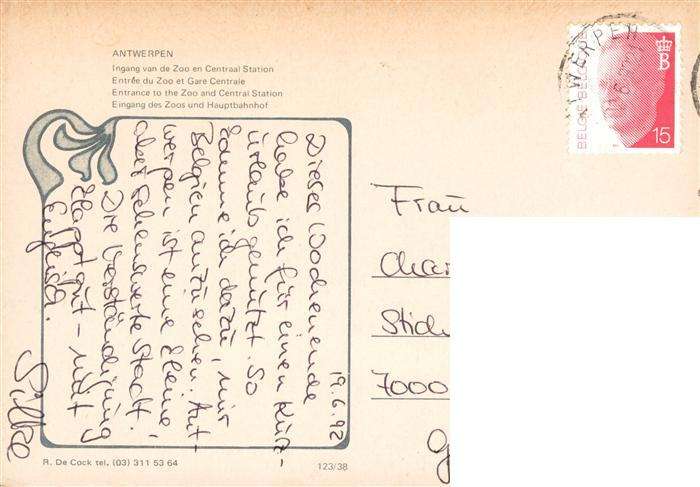 ANTWERPEN
Ingang van de Zoo en Centraal Station
Entrée du Zoo et Gare Centrale
Entrance to the Zoo and Central Station
Eingang des Zoos und Hauptbahnhof
ANTWERPEN
BELGIË BELGIQUE
B
15
19.6.92
Dieses Wochenende
habe ich für einen Kurz-
urlaub genutzt. So
komme ich dazu, mir
Belgien anzusehen. Ant-
werpen ist eine kleine,
aber sehenswerte Stadt.
Die Verständigung
klappt gut - mit
Englisch.
Silke
Frau
Char
Stich
7000
R. De Cock tel. (03) 311 53 64
123/38